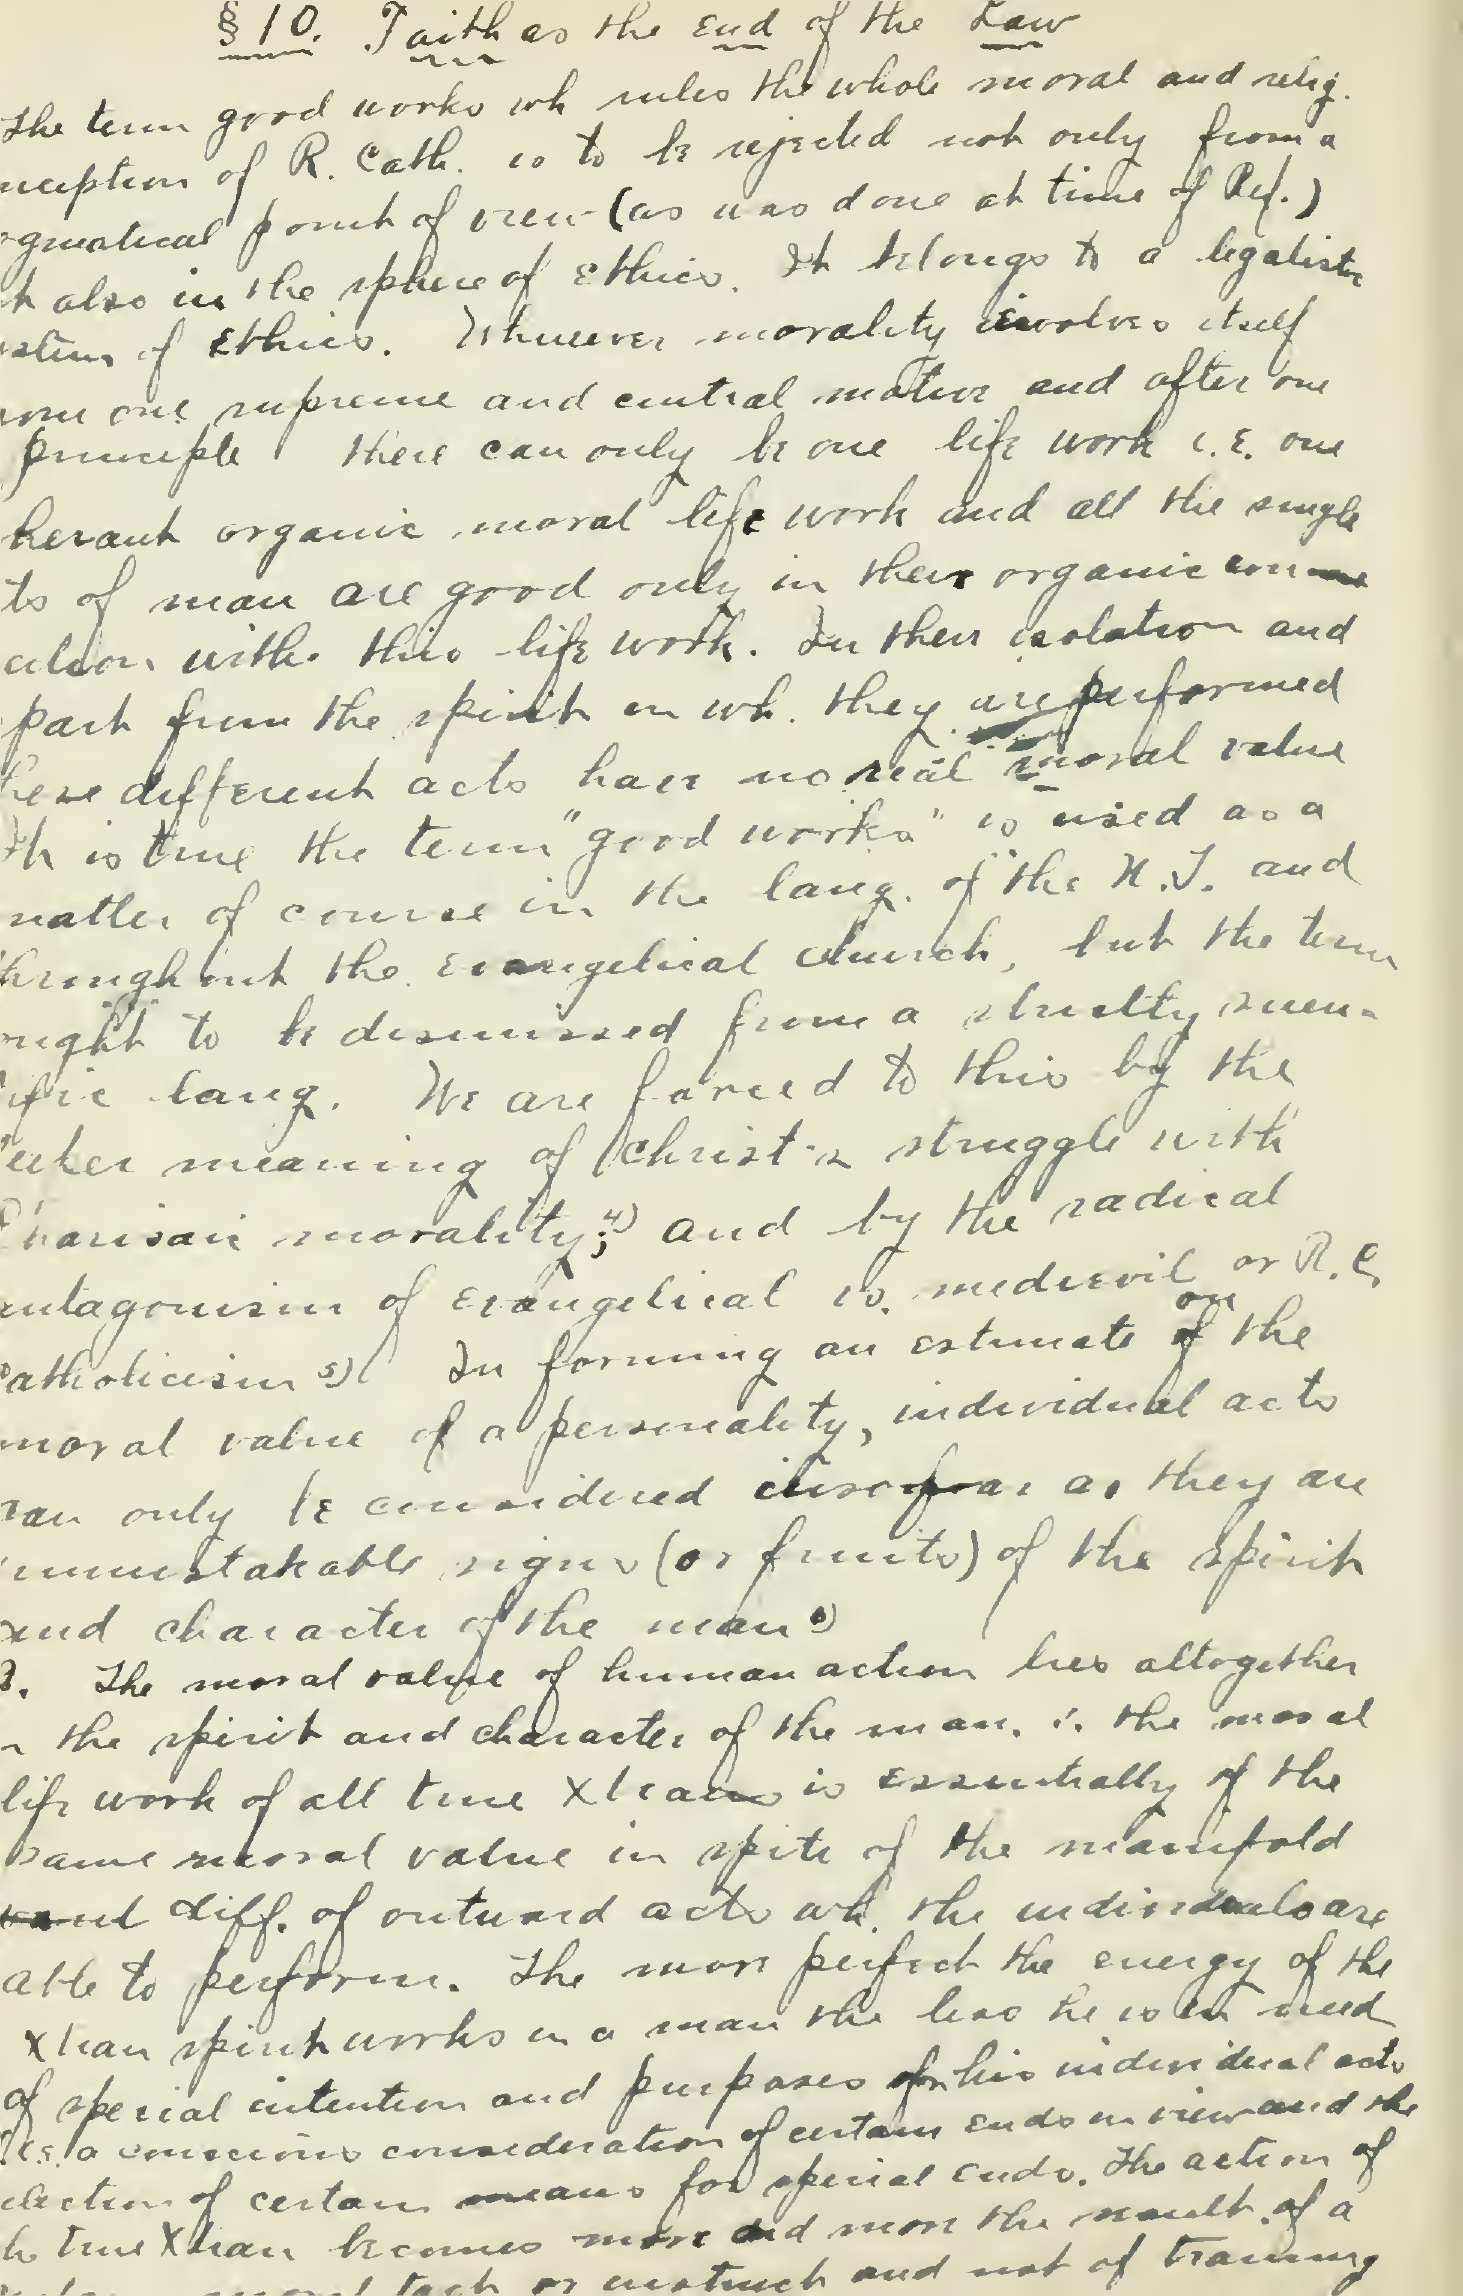 §10. Faith as the End of the Law
The term good works wh rules the whole moral and relig.
nception of R. Cath. is to be rejected not only from a
ogmatical point of view (as was done at time of Ref.)
t also in the sphere of Ethics. It belongs to a legalistic
stem of Ethics. Whenever morality evolves itself
rom one supreme and central motive and after one
principle there can only be one life work i.e. one
herant organic moral life work and all the single
ts of man are good only in their organic conne
ction with this life work. In their isolation and
part from the spirit in wh. they are performed
hese different acts have no real moral value
It is true the term "good works" is used as a
matter of course in the lang. of the N.T. and
hroughout the evangelical church, but the term
ought to be dismissed from a strictly scien-
ific lang. We are forced to this by the
meaning of Christ's struggle with
Pharisaic morality;4) and by the radical
antagonism of evangelical vs. medievil or R.C.
Catholicism 5) In forming an estimate of on the
moral value of a personality, individual acts
can only be considered insofar as they are
unmistakable signs (or fruits) of the spirit
and character of the man 6)
3. The moral value of human action lies altogether
n the spirit and character of the man. ∴ the moral
life work of all true Xtians is essentially of the
same moral value in spite of the manifold
diff. of outward acts wh. the individuals are
able to perform. The more perfect the energy of the
Xtian spirit works in a man the less he is in need
of special intention and purposes for his individual acts
i.e. a conscious consideration of certain ends in view and the
election of certain means for special ends. The action of
he true Xtian becomes more and more the result of a
moral tact or instinct and not of training